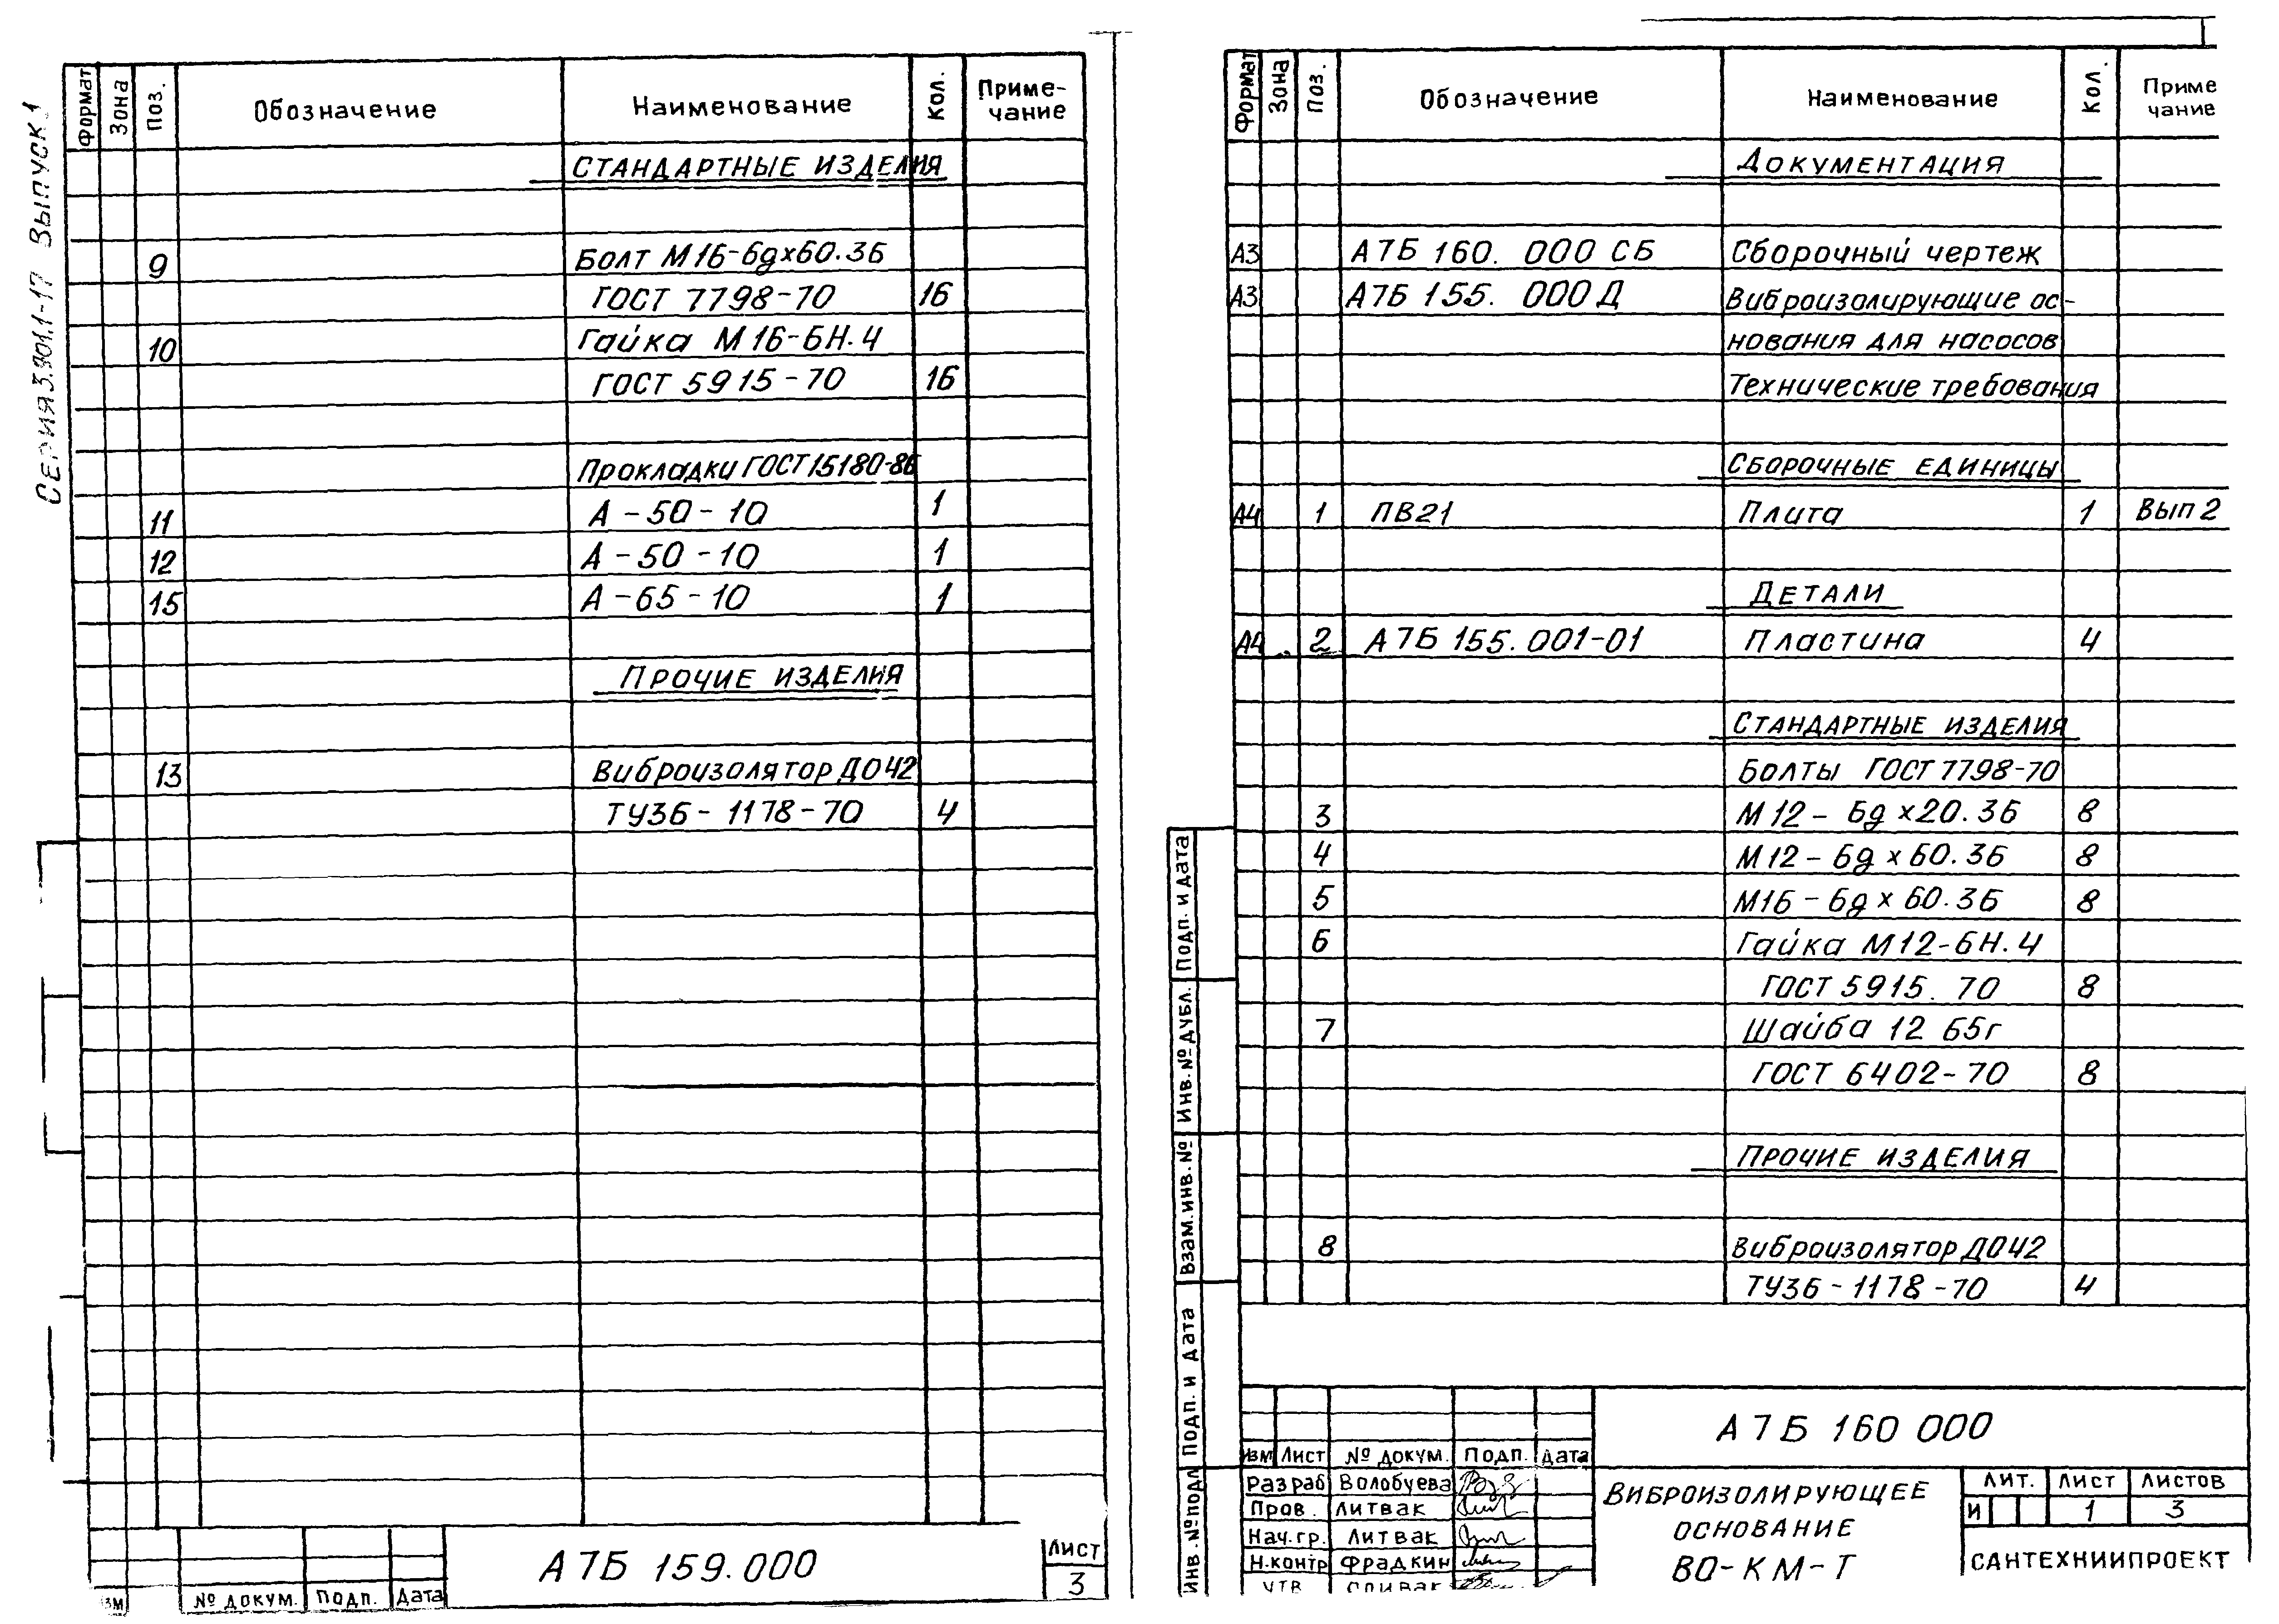 Серия 3.901.1-17 Выпуск 1
Формат Зона Поз. Обозначение Наименование Кол. Приме-
чание
Стандартные изделия
9 Болт М16-6gх60.36
ГОСТ 7798-70 16
10 Гайка М16-6Н.4
ГОСТ 5915-70 16
Прокладки ГОСТ 15180-86
11 А-50-10 1
12 А-50-10 1
15 А-65-10 1
Прочие изделия
13 Виброизолятор ДО42
ТУ36-1178-70 4
№ докум. Подп. Дата
А7Б 159.000
Лист
3
Формат Зона Поз. Обозначение Наименование Кол. Приме
чание
Документация
А3 А7Б 160. 000 СБ Сборочный чертеж
А3 А7Б 155. 000 Д Виброизолирующие ос-
нования для насосов
Технические требования
Сборочные единицы
А4 1 ПВ21 Плита 1 Вып 2
Детали
А4 2 А7Б 155.001-01 Пластина 4
Стандартные изделия
Болты ГОСТ 7798-70
3 М12-6gх20.36 8
4 М12-6gх60.36 8
5 М16-6gх60.36 8
6 Гайка М12-6Н.4
ГОСТ 5915. 70 8
7 Шайба 12 65г
ГОСТ 6402-70 8
Прочие изделия
8 Виброизолятор ДО42
ТУ36-1178-70 4
Подп. и дата
Инв. № дубл.
Взам. инв. №
Подп. и дата
Инв. № подл
Изм Лист № докум. Подп. Дата
Разраб Волобуева
Пров. Литвак
Нач.гр. Литвак
Н.контр Фрадкин
Утв Спивак
А7Б 160 000
Виброизолирующее
основание
ВО-КМ-Т
Лит. Лист Листов
И 1 3
САНТЕХНИИПРОЕКТ